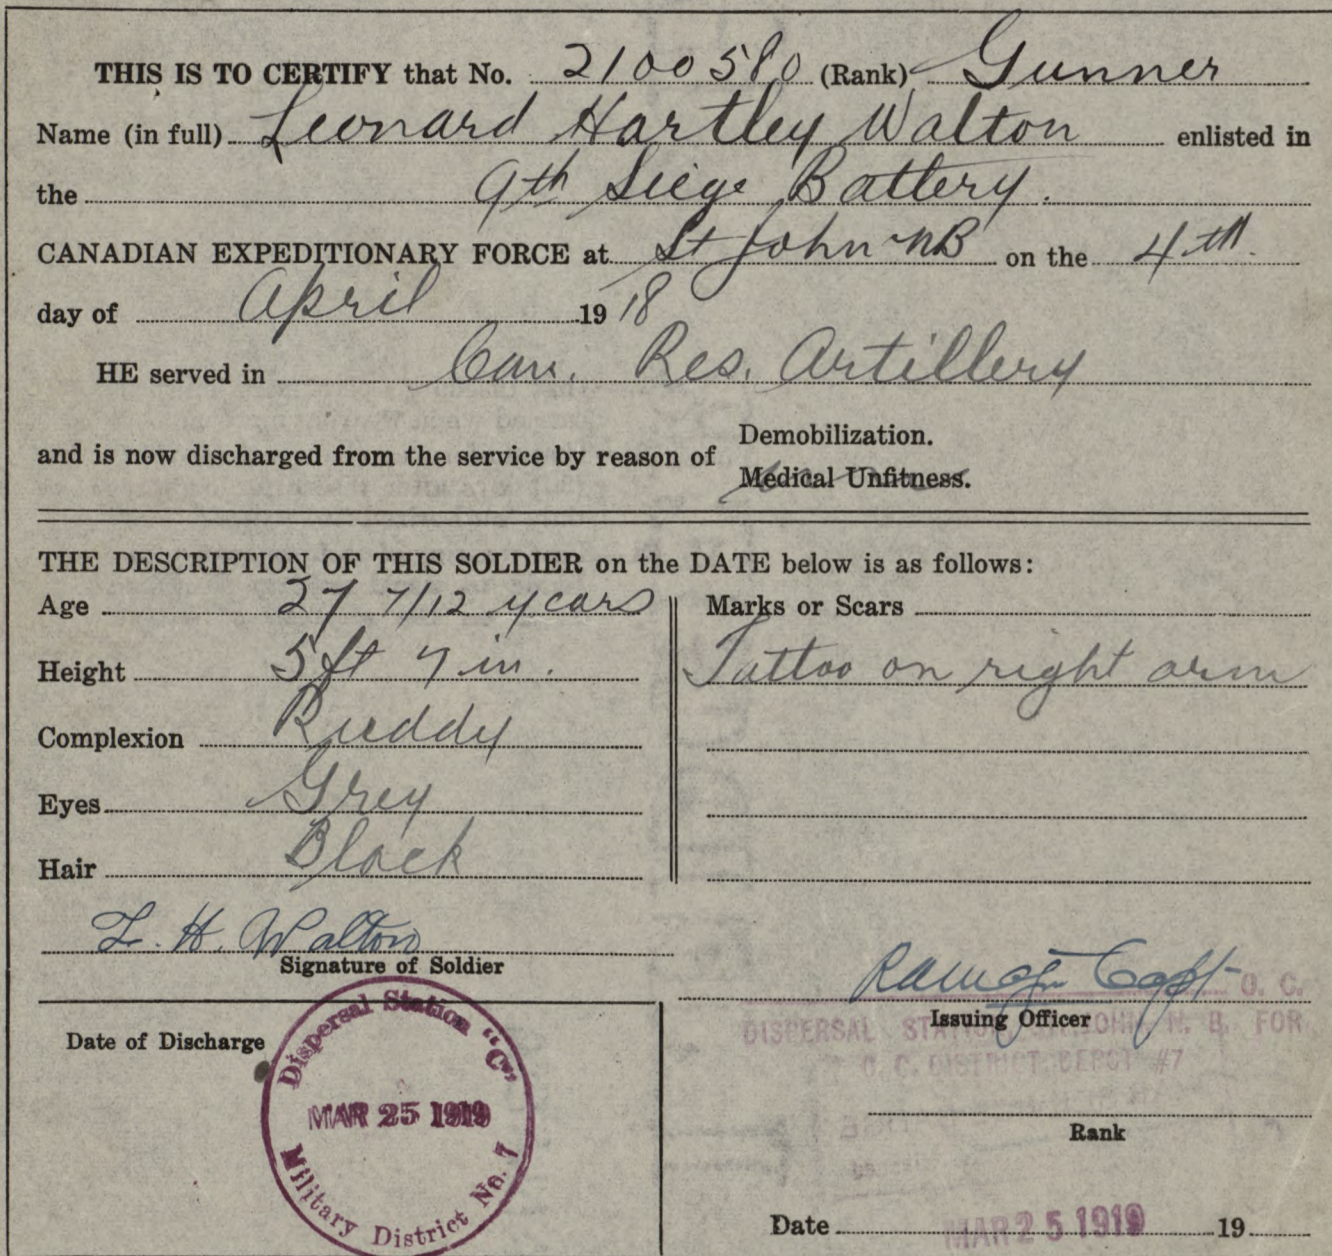 THIS IS TO CERTIFY that No. 2100580 (Rank) Gunner
Name (in full) Leonard Hartley Walton enlisted in
the 9th Siege Battery.
CANADIAN EXPEDITIONARY FORCE at St John NB on the 4th.
day of April 1918
HE served in Can. Res. Artillery
and is now discharged from the service by reason of Demobilization.
Medical Unfitness.
THE DESCRIPTION OF THIS SOLDIER on the DATE below is as follows:
Age 27 7/12 years
Height 5 ft 7 in.
Complexion Ruddy
Eyes Grey
Hair Black
Marks or Scars
Tattoo on right arm
L. H. Walton
Signature of Soldier
Date of Discharge
Dispersal Station "C"
MAR 25 1919
Military District No. 7
Capt O. C.
Issuing Officer
DISPERSAL STATION ST. JOHN N. B. FOR
O. C. DISTRICT DEPOT #7
Rank
Date MAR 25 1919 19